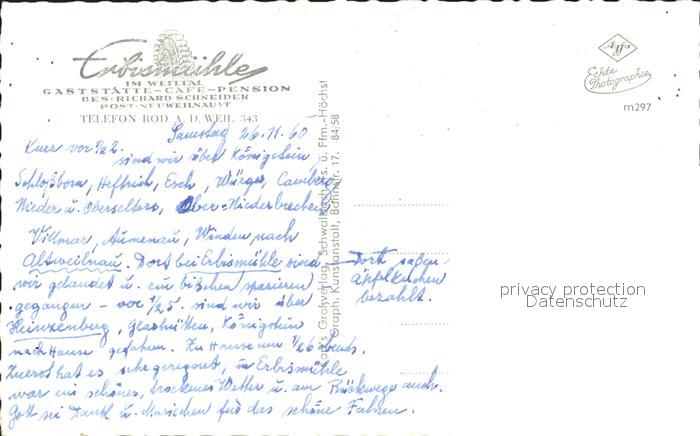 Erbismühle
IM WEILTAL
GASTSTÄTTE-CAFE-PENSION
BES: RICHARD SCHNEIDER
POST: NEUWEILNAU/T
TELEFON ROD A. D. WEIL 343
Agfa
Echte
Photographie
m297
Samstag 26.11.60
Kurz vor 1/2 2.
sind wir über Königstein,
Schloßborn, Heftrich, Esch, Würges, Camberg
Nieder u. Oberselters, Ober-Niederbrechen
Villmar, Aumenau, Winden nach
Altweilnau. Dort bei Erbismühle sind
wir gelandet u. ein bißchen spazieren
gegangen - vor 1/2 5. sind wir über
Heinzenberg, Glashütten, Königstein
nach Hause gefahren. Zu Hause um 1/2 6 abends.
Zuerst hat es sehr geregnet, in Erbismühle
war ein schönes, trockenes Wetter u. am Rückwege auch.
Gott sei Dank u. Mariechen für das schöne Fahren.
Dort
äpfelkuchen
bezahlt.
Großverlag, Schwalbach
ü. Ffm.-Höchst
Graph. Kunstanstalt, Bahnstr. 17. 84/58
privacy protection
Datenschutz